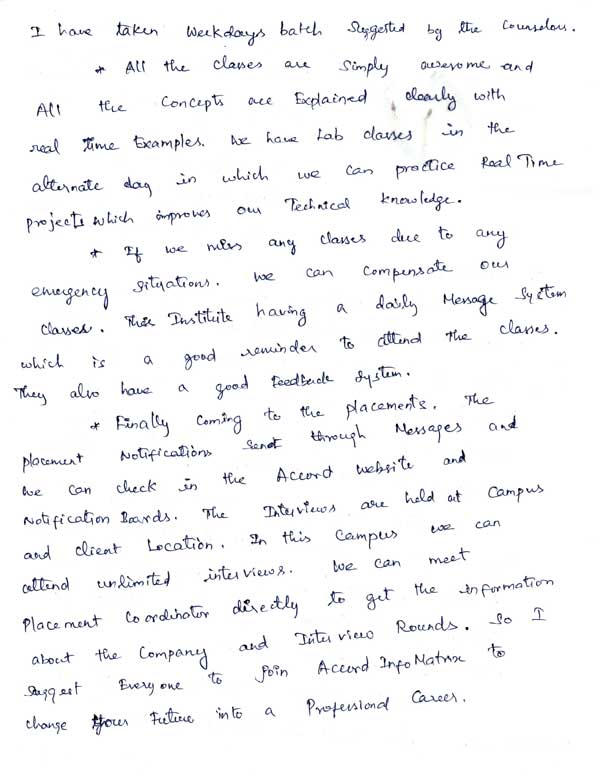 I have taken Weekdays batch Suggested by the Counselors.
* All the classes are Simply awesome and
All the Concepts are Explained clearly with
real time Examples. We have Lab classes in the
alternate day in which we can practice Real Time
projects which improves our Technical knowledge.
* If we miss any classes due to any
emergency situations. We can Compensate our
classes. This Institute having a daily Message System
which is a good reminder to attend the classes.
They also have a good Feedback System.
* Finally Coming to the placements. The
placement Notifications Send through Messages and
we can check in the Accord Website and
Notification Boards. The Interviews are held at Campus
and client Location. In this Campus we can
attend unlimited interviews. We can meet
Placement Coordinator directly to get the information
about the Company and Interview Rounds. So I
Suggest Everyone to Join Accord Info Matrix to
change your Future into a Professional Career.